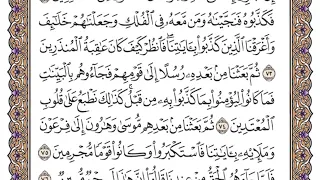 فَكَذَّبُوهُ فَنَجَّيْنَٰهُ وَمَن مَّعَهُۥ فِى ٱلْفُلْكِ وَجَعَلْنَٰهُمْ خَلَٰٓئِفَ
وَأَغْرَقْنَا ٱلَّذِينَ كَذَّبُوا۟ بِـَٔايَٰتِنَا ۖ فَٱنظُرْ كَيْفَ كَانَ عَٰقِبَةُ ٱلْمُنذَرِينَ
٧٣ ثُمَّ بَعَثْنَا مِنۢ بَعْدِهِۦ رُسُلًا إِلَىٰ قَوْمِهِمْ فَجَآءُوهُم بِٱلْبَيِّنَٰتِ
فَمَا كَانُوا۟ لِيُؤْمِنُوا۟ بِمَا كَذَّبُوا۟ بِهِۦ مِن قَبْلُ ۚ كَذَٰلِكَ نَطْبَعُ عَلَىٰ قُلُوبِ
ٱلْمُعْتَدِينَ ٧٤ ثُمَّ بَعَثْنَا مِنۢ بَعْدِهِم مُّوسَىٰ وَهَٰرُونَ إِلَىٰ فِرْعَوْنَ
وَمَلَإِي۟هِۦ بِـَٔايَٰتِنَا فَٱسْتَكْبَرُوا۟ وَكَانُوا۟ قَوْمًا مُّجْرِمِينَ
٧٥